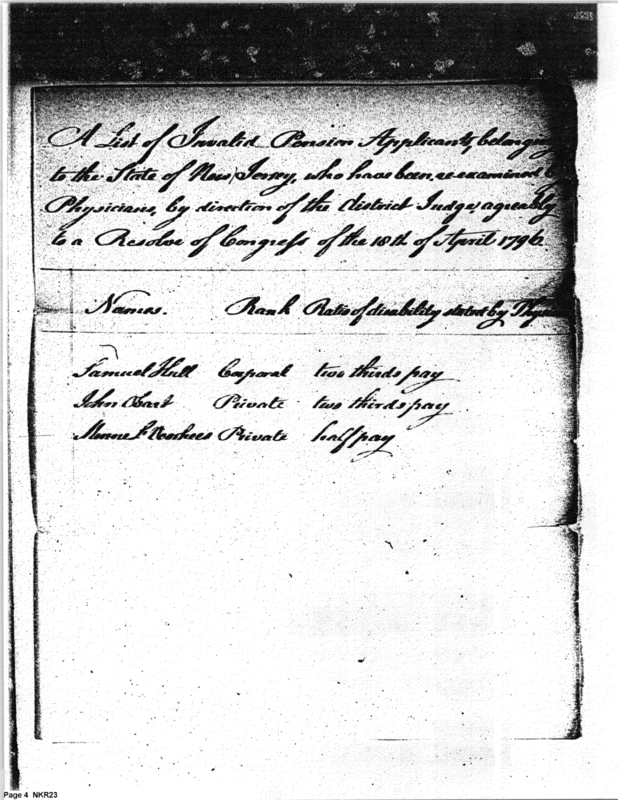 A List of Invalid Pension Applicants, belonging
to the State of New Jersey, who have been re examined
Physicians, by direction of the district Judge, agreably
to a Resolve of Congress of the 18th of April 1796.
Names. Rank Ratio of disability stated by
Samuel Hull Corporal two thirds pay
John Cast Private two thirds pay
Voorhees Private half pay
Page 4 NKR23